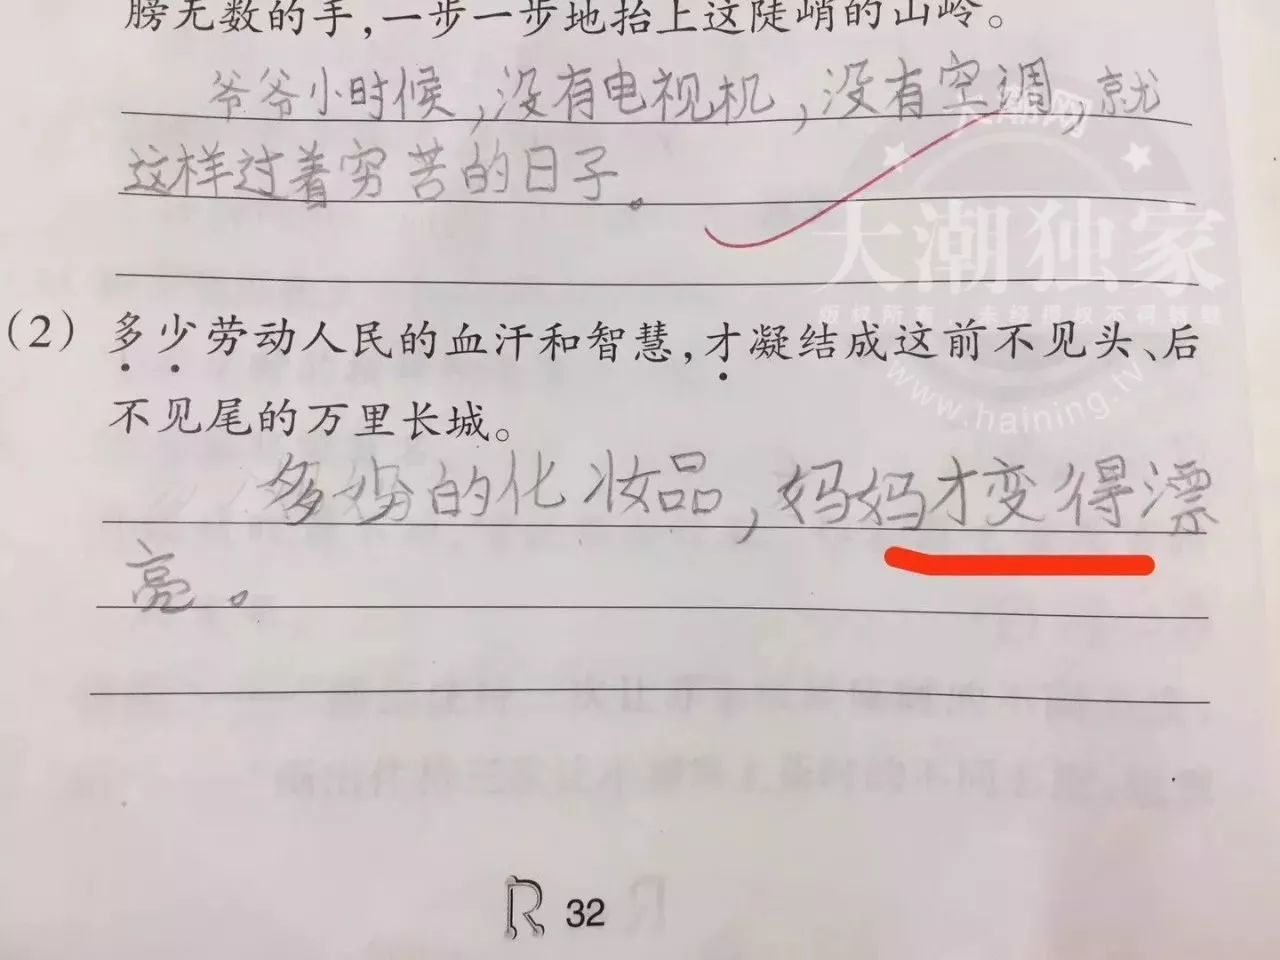 膀无数的手,一步一步地抬上这陡峭的山岭。
爷爷小时候,没有电视机,没有空调,就
这样过着穷苦的日子。
大潮网
大潮独家
版权所有,未经授权不得转载
(2) 多少劳动人民的血汗和智慧,才凝结成这前不见头、后
www.haining.tv
不见尾的万里长城。
多少的化妆品,妈妈才变得漂
亮。
R 32